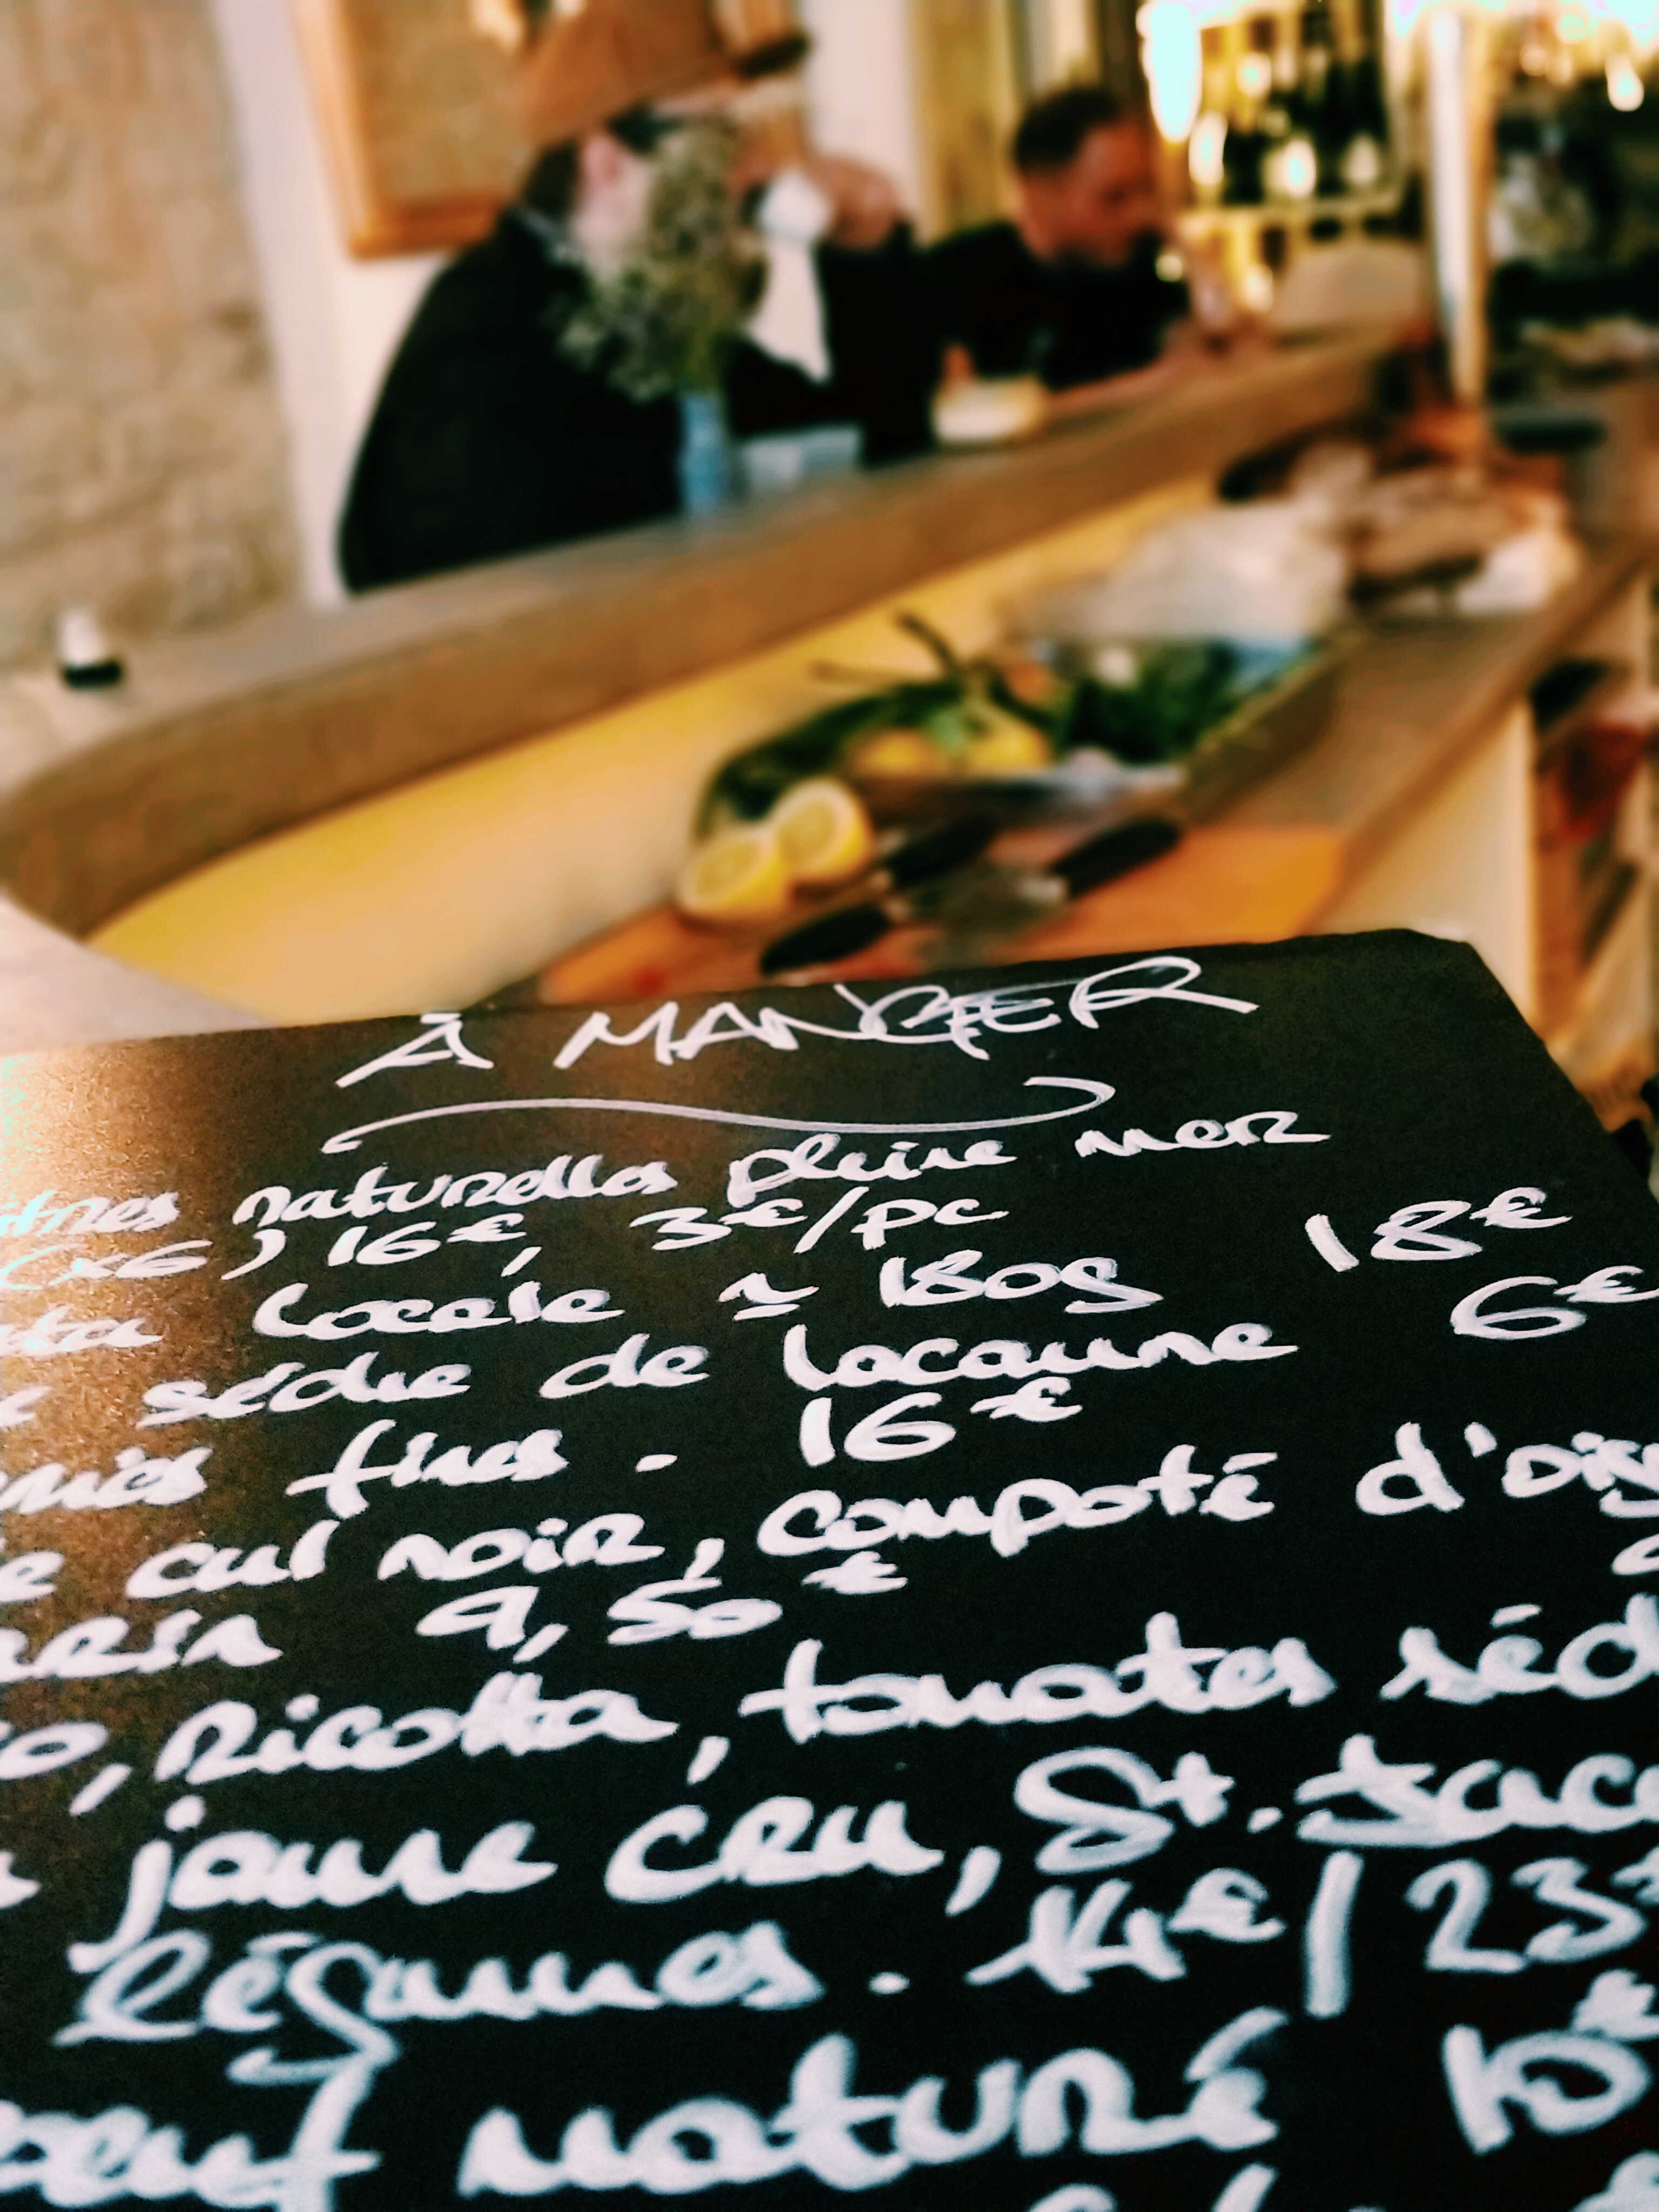 À MANGER
naturelles pleine mer
(x6) 16€, 3€/pc
locale ≃ 180g 18€
séchée de Lacaune 6€
fines. 16€
cul noir, compoté d'oig
9,50€
, ricotta, tomates séch
jaune cru, St. Jacq
légumes. 14€/23
maturé 10€